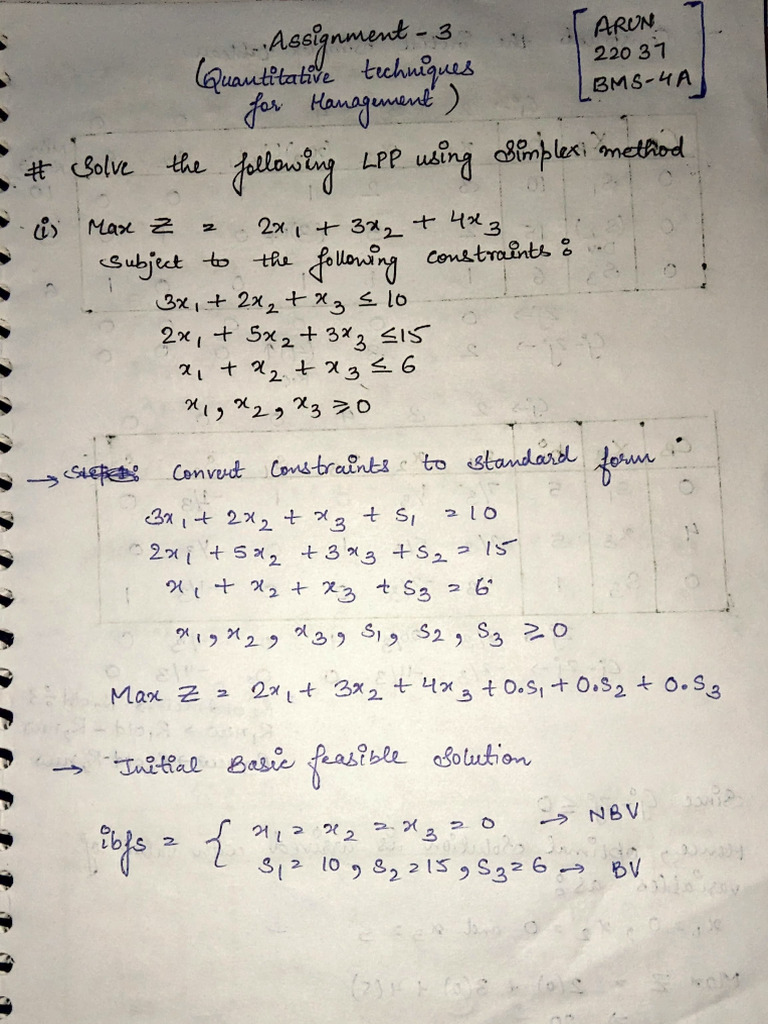 Assignment - 3
(Quantitative techniques
for Management)
[ARUN
22037
BMS-4A]
# Solve the following LPP using Simplex method
(i) Max Z = 2x₁ + 3x₂ + 4x₃
Subject to the following constraints :
3x₁ + 2x₂ + x₃ ≤ 10
2x₁ + 5x₂ + 3x₃ ≤ 15
x₁ + x₂ + x₃ ≤ 6
x₁, x₂, x₃ ≥ 0
→ Convert Constraints to standard form
3x₁ + 2x₂ + x₃ + S₁ = 10
2x₁ + 5x₂ + 3x₃ + S₂ = 15
x₁ + x₂ + x₃ + S₃ = 6
x₁, x₂, x₃, S₁, S₂, S₃ ≥ 0
Max Z = 2x₁ + 3x₂ + 4x₃ + 0.S₁ + 0.S₂ + 0.S₃
→ Initial Basic feasible Solution
ibfs = { x₁ = x₂ = x₃ = 0 → NBV
S₁ = 10, S₂ = 15, S₃ = 6 → BV